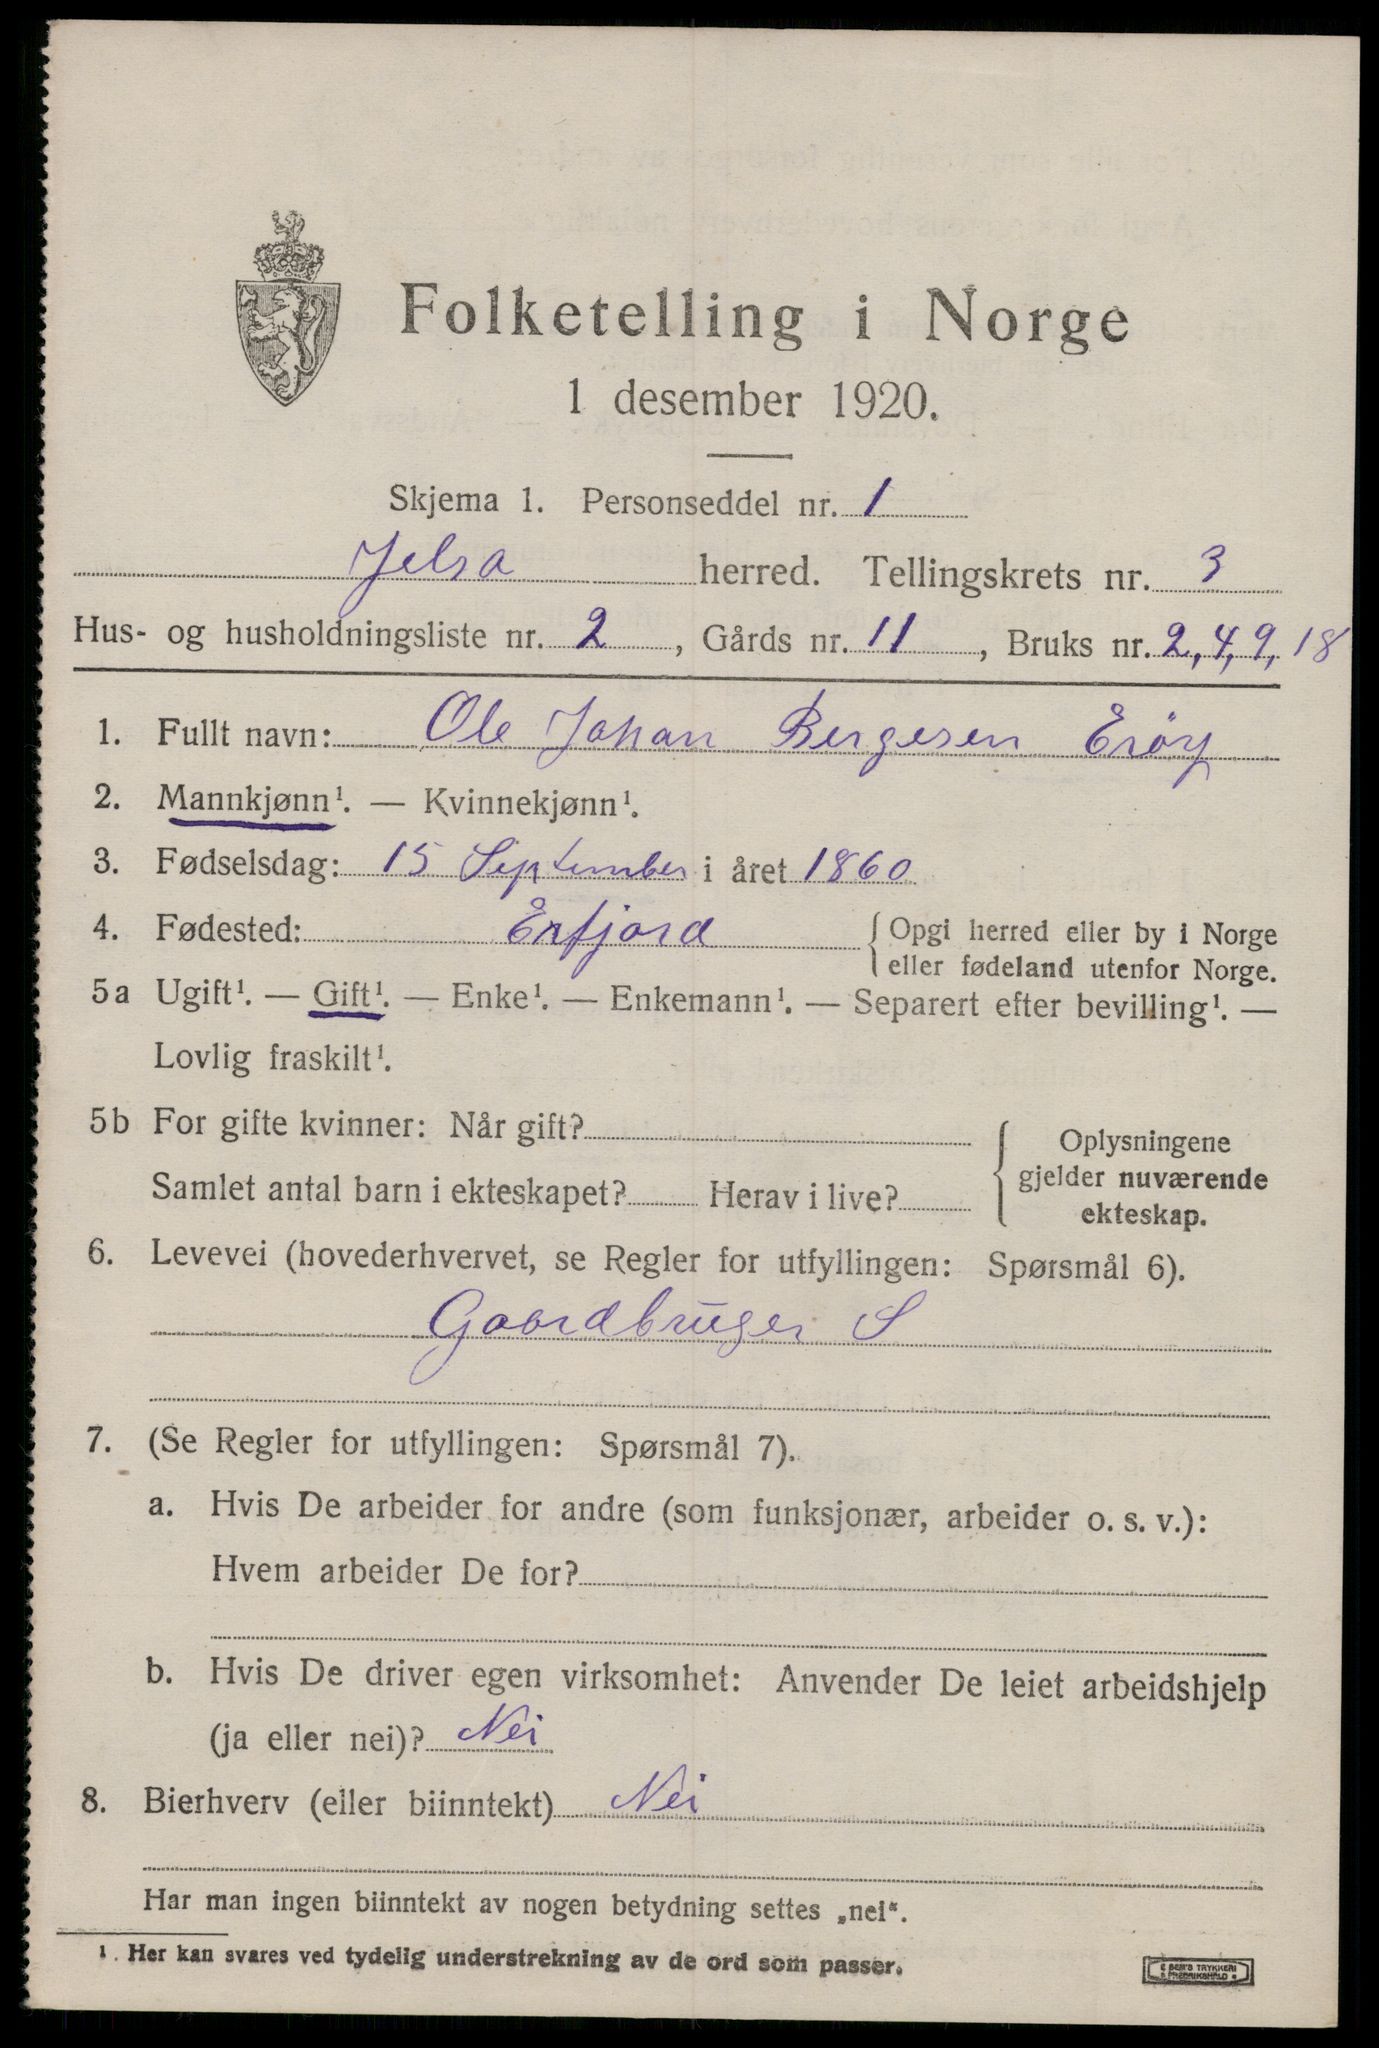 Folketelling i Norge
1 desember 1920.
Skjema 1. Personseddel nr. 1
Jelsa herred. Tellingskrets nr. 3
Hus- og husholdningsliste nr. 2, Gårds nr. 11, Bruks nr. 2, 4, 9, 18
1. Fullt navn: Ole Johan Bergesen Erøy
2. Mannkjønn¹. — Kvinnekjønn¹.
3. Fødselsdag: 15 September i året 1860
4. Fødested: Erfjord { Opgi herred eller by i Norge
eller fødeland utenfor Norge.
5a Ugift¹. — Gift¹. — Enke¹. — Enkemann¹. — Separert efter bevilling¹. —
Lovlig fraskilt¹.
5b For gifte kvinner: Når gift?
Samlet antal barn i ekteskapet? Herav i live?
{ Oplysningene
gjelder nuværende
ekteskap.
6. Levevei (hovederhvervet, se Regler for utfyllingen: Spørsmål 6).
Gaardbruger S
7. (Se Regler for utfyllingen: Spørsmål 7).
a. Hvis De arbeider for andre (som funksjonær, arbeider o. s. v.):
Hvem arbeider De for?
b. Hvis De driver egen virksomhet: Anvender De leiet arbeidshjelp
(ja eller nei)? Nei
8. Bierhverv (eller biinntekt) Nei
Har man ingen biinntekt av nogen betydning settes „nei“.
¹. Her kan svares ved tydelig understrekning av de ord som passer.
E SEM'S TRYKKERI
FREDRIKSHALD